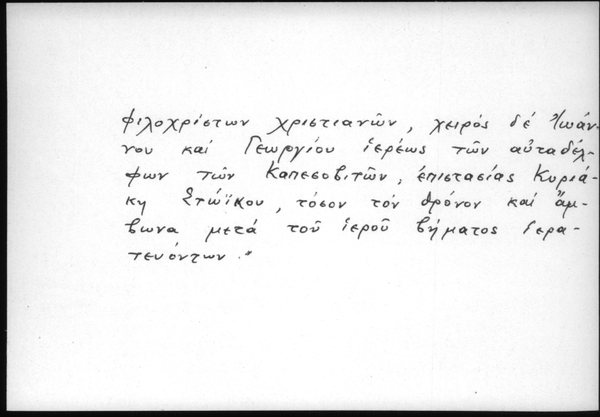 φιλοχρίστων χριστιανῶν, χειρός δέ Ἰωάν-
νου καί Γεωργίου ἱερέως τῶν αὐταδέλ-
φων τῶν Καπεσοβιτῶν, ἐπιστασίας Κυριά-
κη Στώϊκου, τόσον τόν θρόνον καί ἄμ-
βωνα μετά τοῦ ἱεροῦ βήματος ἱερα-
τευόντων."